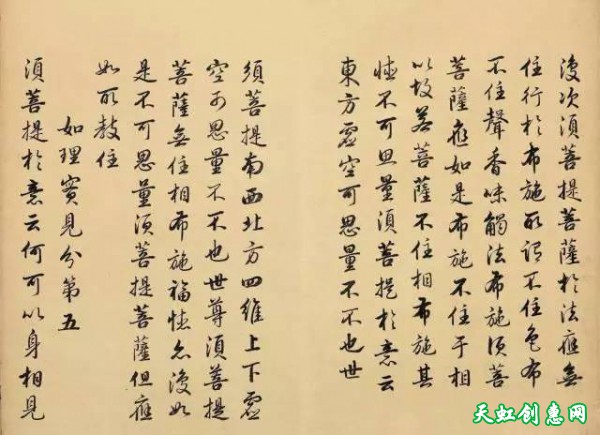 復次須菩提菩薩於法應無
住行於布施所謂不住色布
不住聲香味觸法布施須菩
菩薩應如是布施不住于相
以故若菩薩不住相布施其
德不可思量須菩提於意云
東方虛空可思量不不也世
須菩提南西北方四維上下虛
空可思量不不也世尊須菩提
菩薩無住相布施福德亦復如
是不可思量須菩提菩薩但應
如所教住
如理實見分第五
須菩提於意云何可以身相見
天虹创惠网